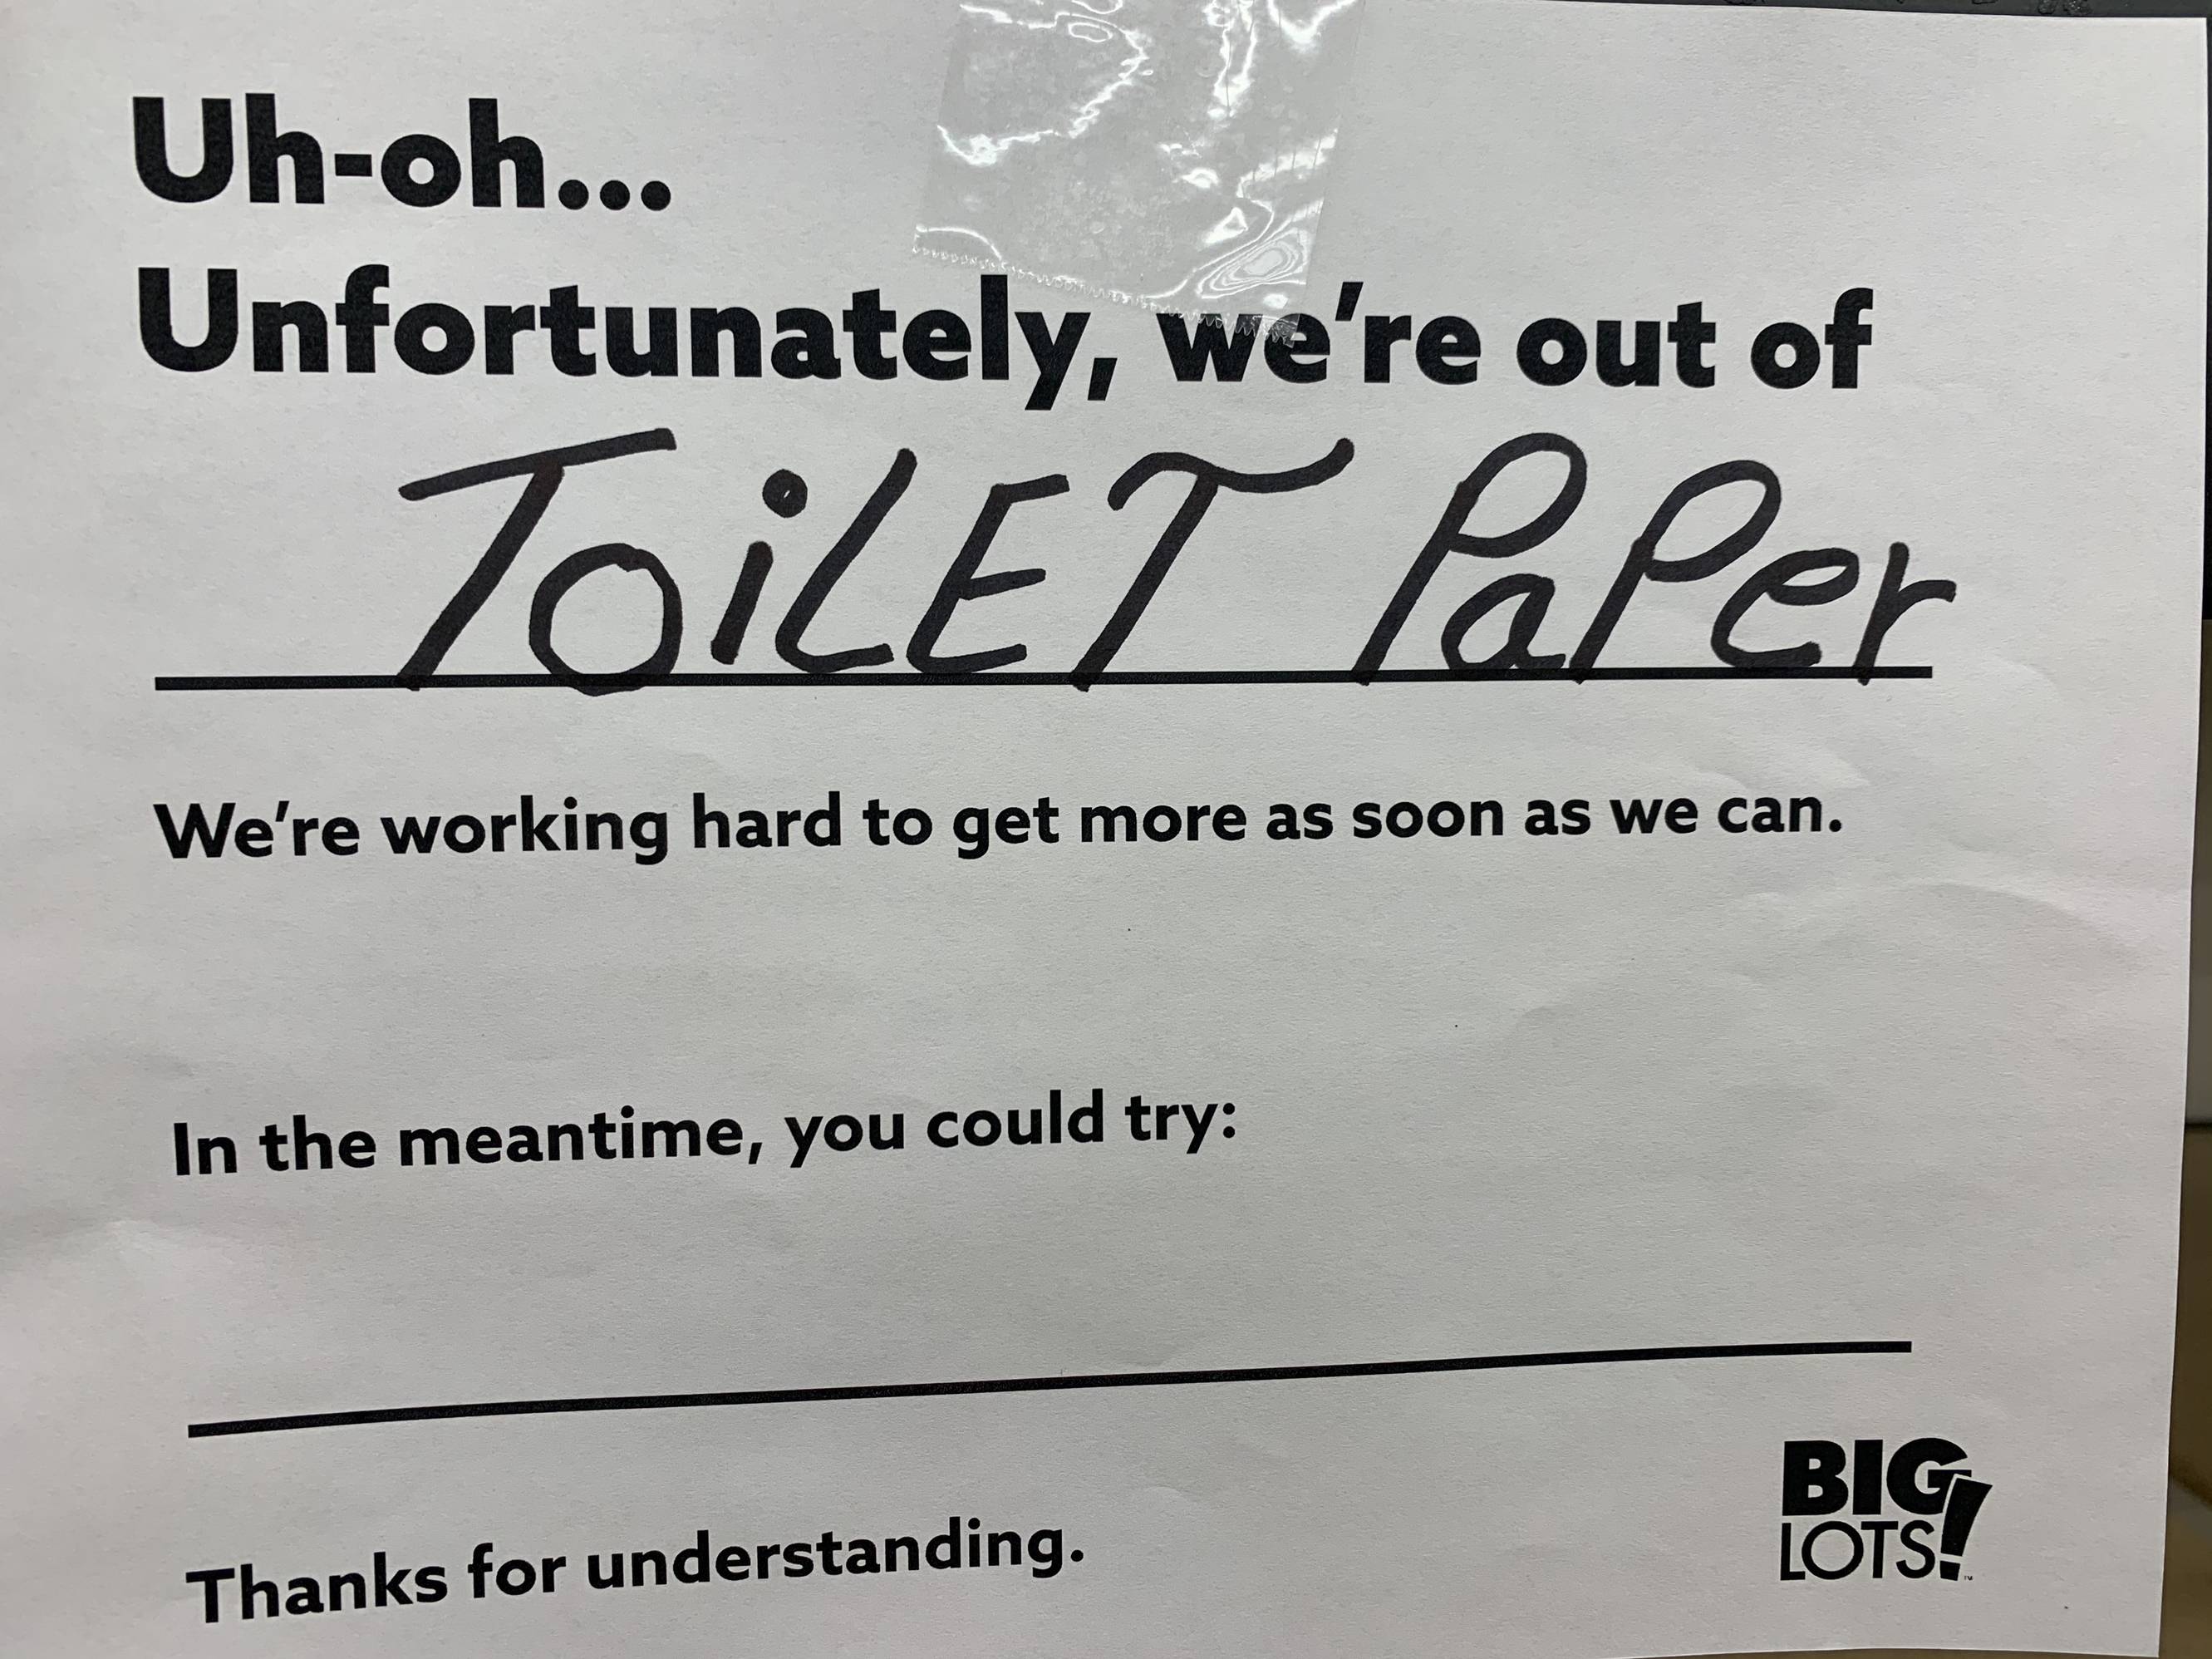 Uh-oh...
Unfortunately, we're out of
ToiLET PaPer
We're working hard to get more as soon as we can.
In the meantime, you could try:
Thanks for understanding.
BIG
LOTS!™